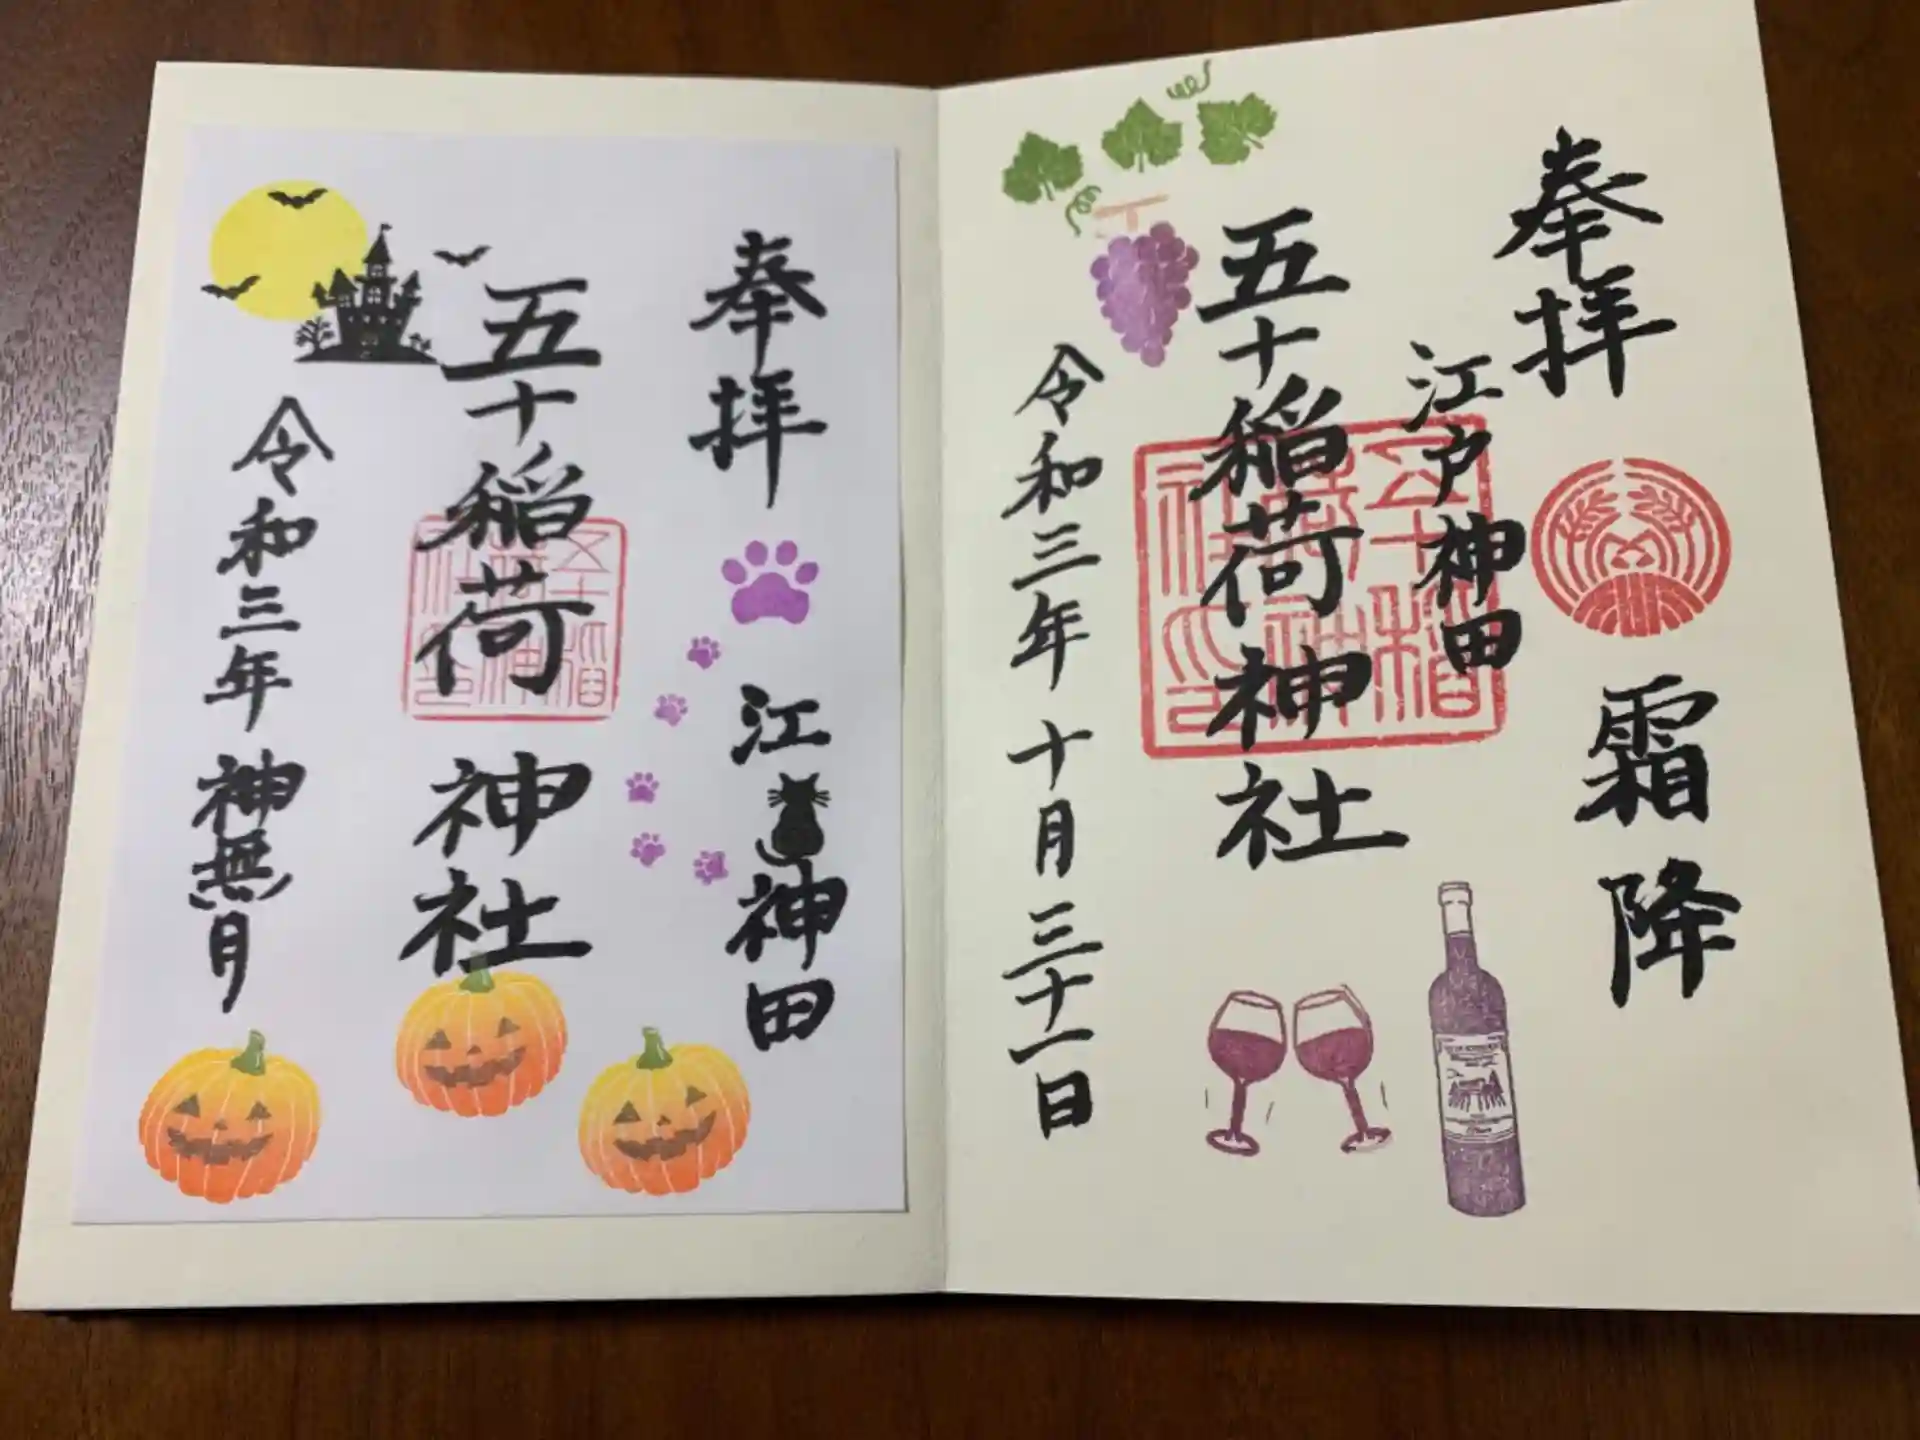 奉拝 霜降
江戸神田
五十稲荷神社
令和三年十月三十一日
奉拝 江 神田
五十稲荷神社
令和三年神無月